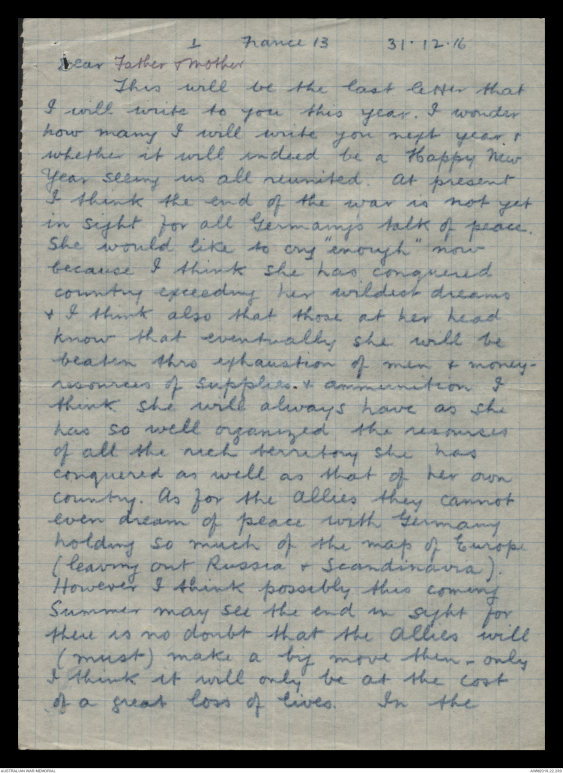 1 France 13 31.12.16
Dear Father & Mother
This will be the last letter that
I will write to you this year. I wonder
how many I will write you next year &
whether it will indeed be a Happy New
Year seeing us all reunited. At present
I think the end of the war is not yet
in sight for all Germany's talk of peace.
She would like to cry "enough" now
because I think she has conquered
country exceeding her wildest dreams
& I think also that those at her head
know that eventually she will be
beaten thro exhaustion of men & money-
resources of supplies. & ammunition I
think she will always have as she
has so well organized the resources
of all the rich territory she has
conquered as well as that of her own
country. As for the Allies they cannot
even dream of peace with Germany
holding so much of the map of Europe
(leaving out Russia & Scandinavia).
However I think possibly this coming
Summer may see the end in sight for
there is no doubt that the Allies will
(must) make a big move then - only
I think it will only be at the cost
of a great loss of lives. In the
AUSTRALIAN WAR MEMORIAL